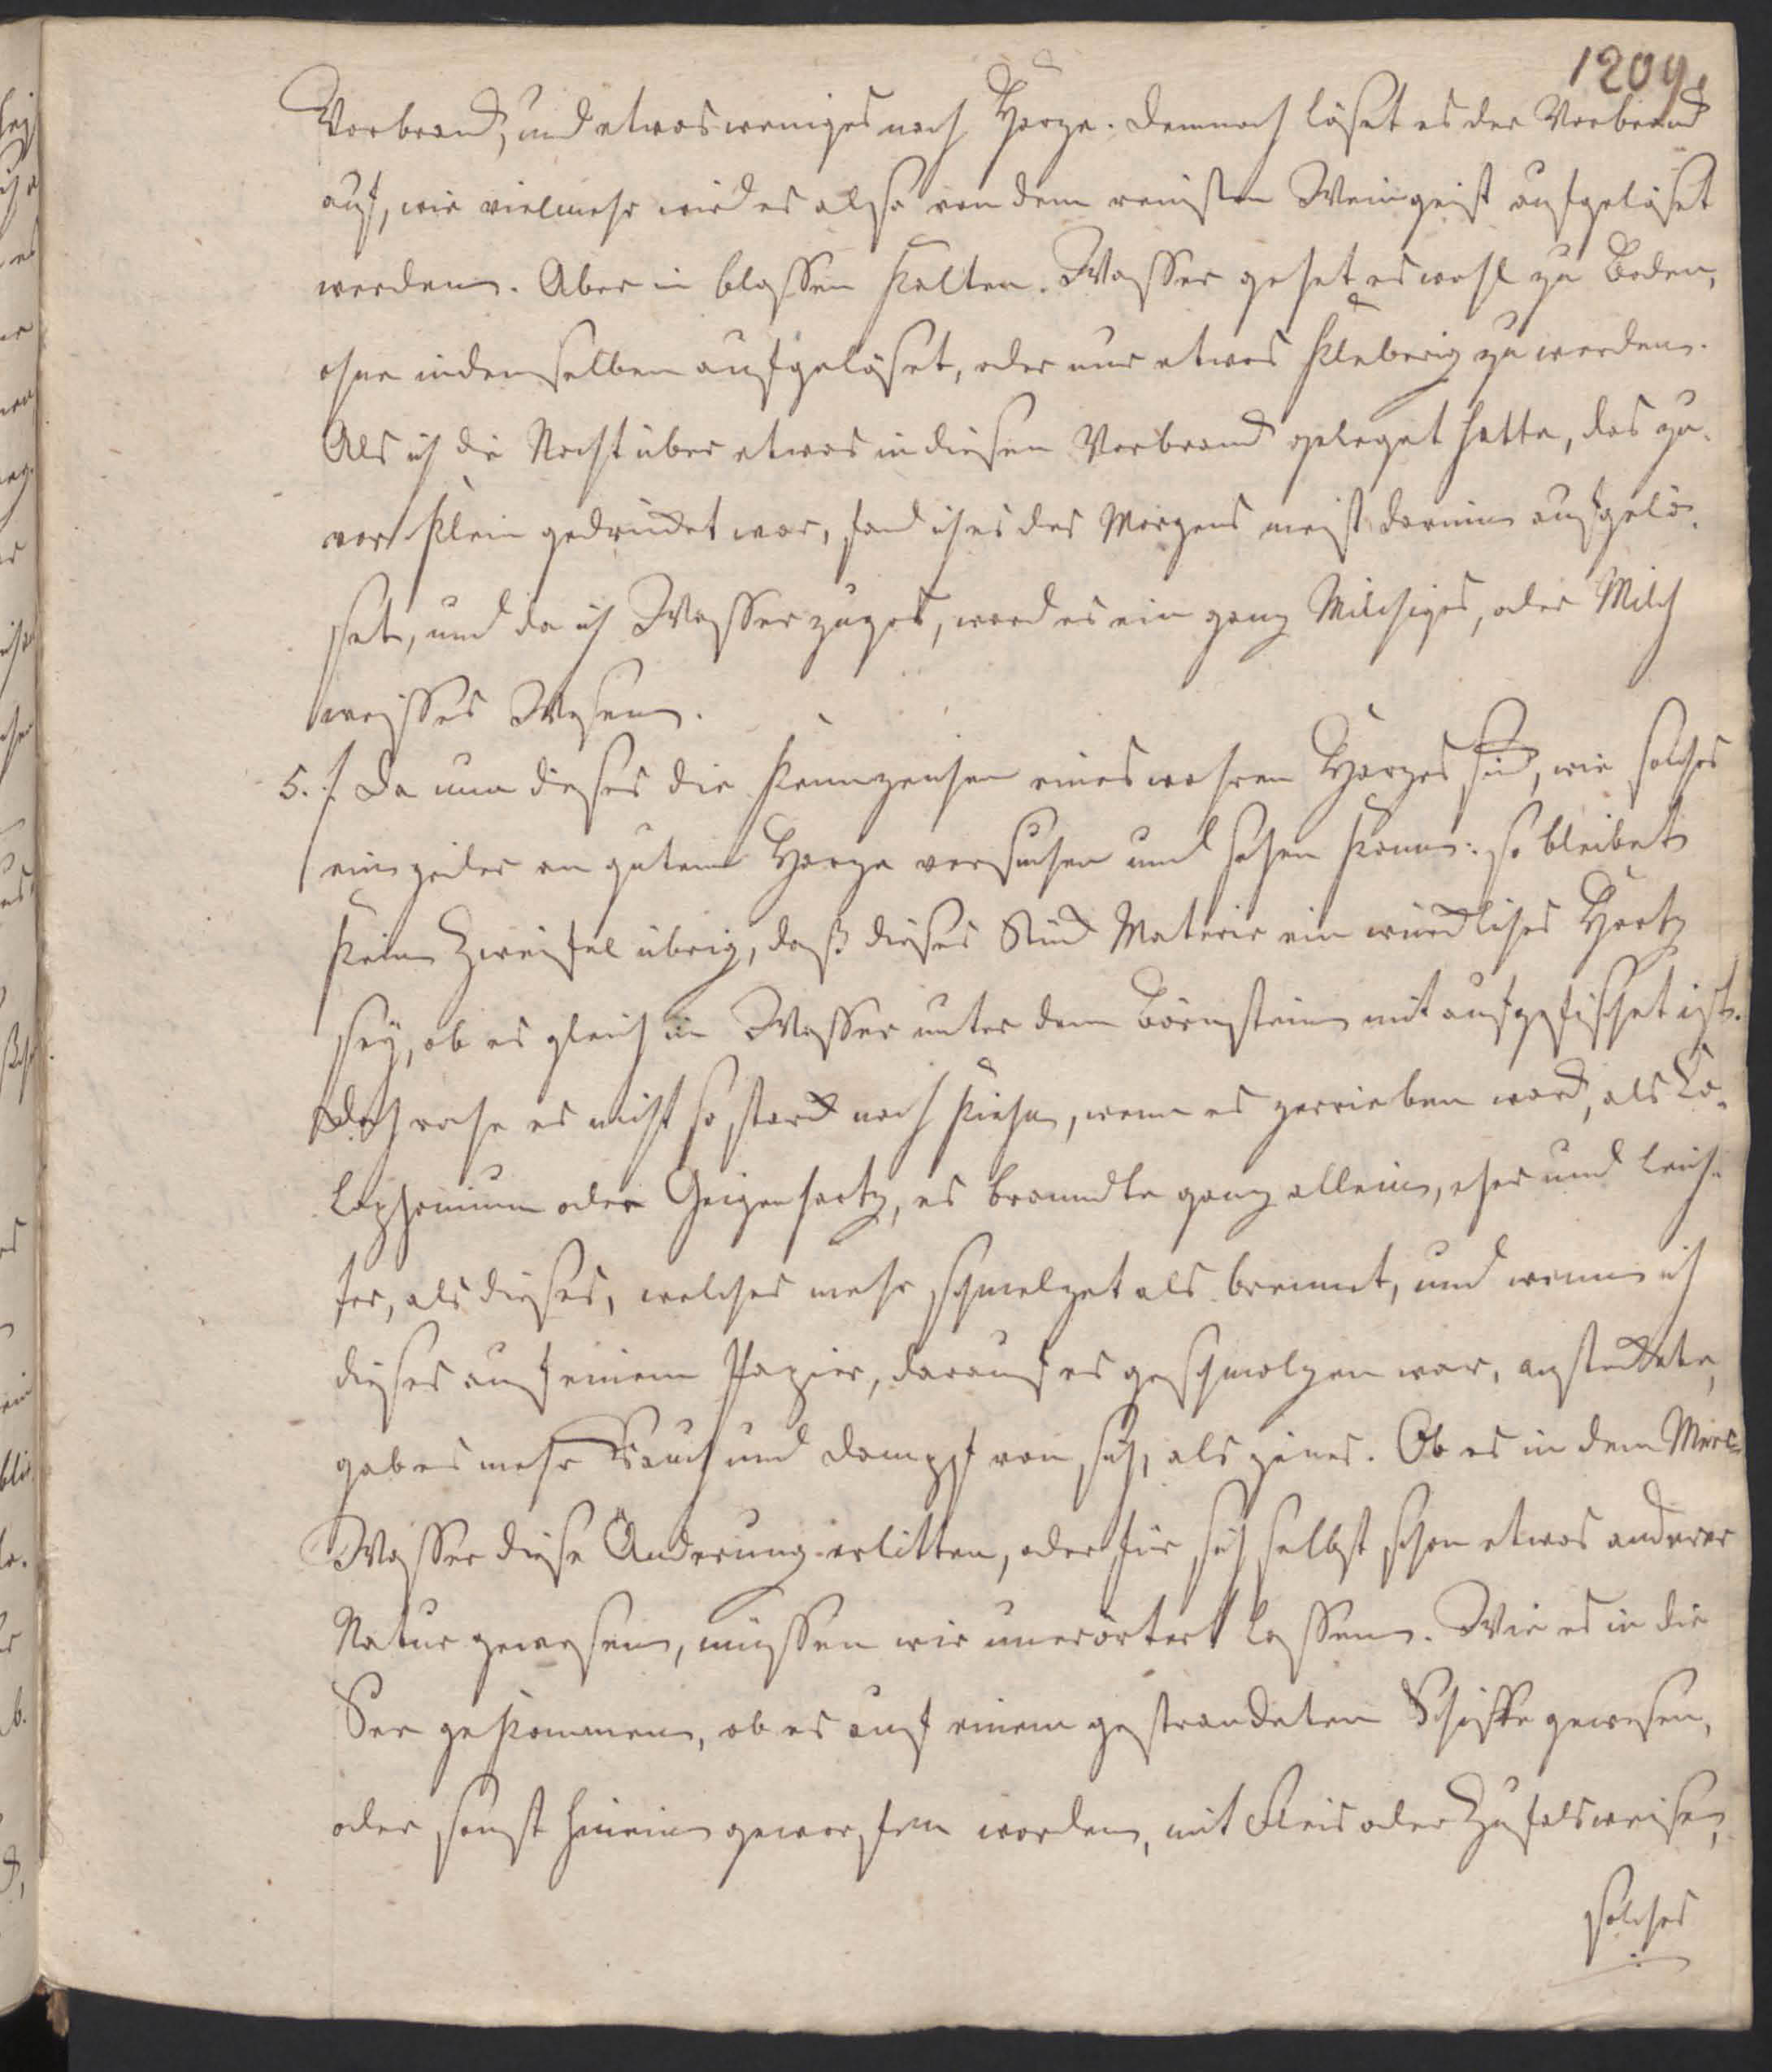 1209.
Vorbrand, und etwas weniges nach Hartze. Dennoch löset es der Vorbrand
auf, wie vielmehr wird es also von dem reinsten Weingeist aufgelöset
werden. Aber in blossen kalten Wasser gehet es wohl zu Boden,
ohne in demselben aufgelöset, oder nur etwas kleberig zu werden.
Als ich die Nacht über etwas in diesen Vorbrand geleget hatte, das zu-
vor klein gedrückt war, fand ich es des Morgens meist darinn aufgelö-
set, und da ich Wasser zugos, ward es ein ganz Milchiges, oder Milch
weisses Wesen.
5. f. Da nun dieses die Kennzeichen eines wahren Harzes sind, wie solches
ein jeder an gutem Harze versuchen und sehen kann: so bleibet
kein Zweifel übrig, daß dieses Stück Materie ein würckliches Hartz
sey, ob es gleich im Wasser unter dem Börnstein mit aufgefischet ist.
Doch roche es nicht so starck nach Kiehn, wenn es gerieben ward, als Co-
lophonium oder Geigenhartz, es brandte ganz allein, eher und leich-
ter, als dieses, welches mehr schmelzet als brennet, und wenn ich
dieses auf einem Papier, darauf es geschmolzen war, ansteckete,
gab es mehr Rauch und Dampf von sich, als jenes. Ob es in dem Meer-
Wasser diese Änderung erlitten, oder für sich selbst schon etwas anderer
Natur gewesen, müssen wir unerörtert lassen. Wie es in die
See gekommen, ob es auf einem gestrandeten Schiffe gewesen,
oder sonst hinein geworfen worden, mit Fleis oder Zufalsweise,
solches